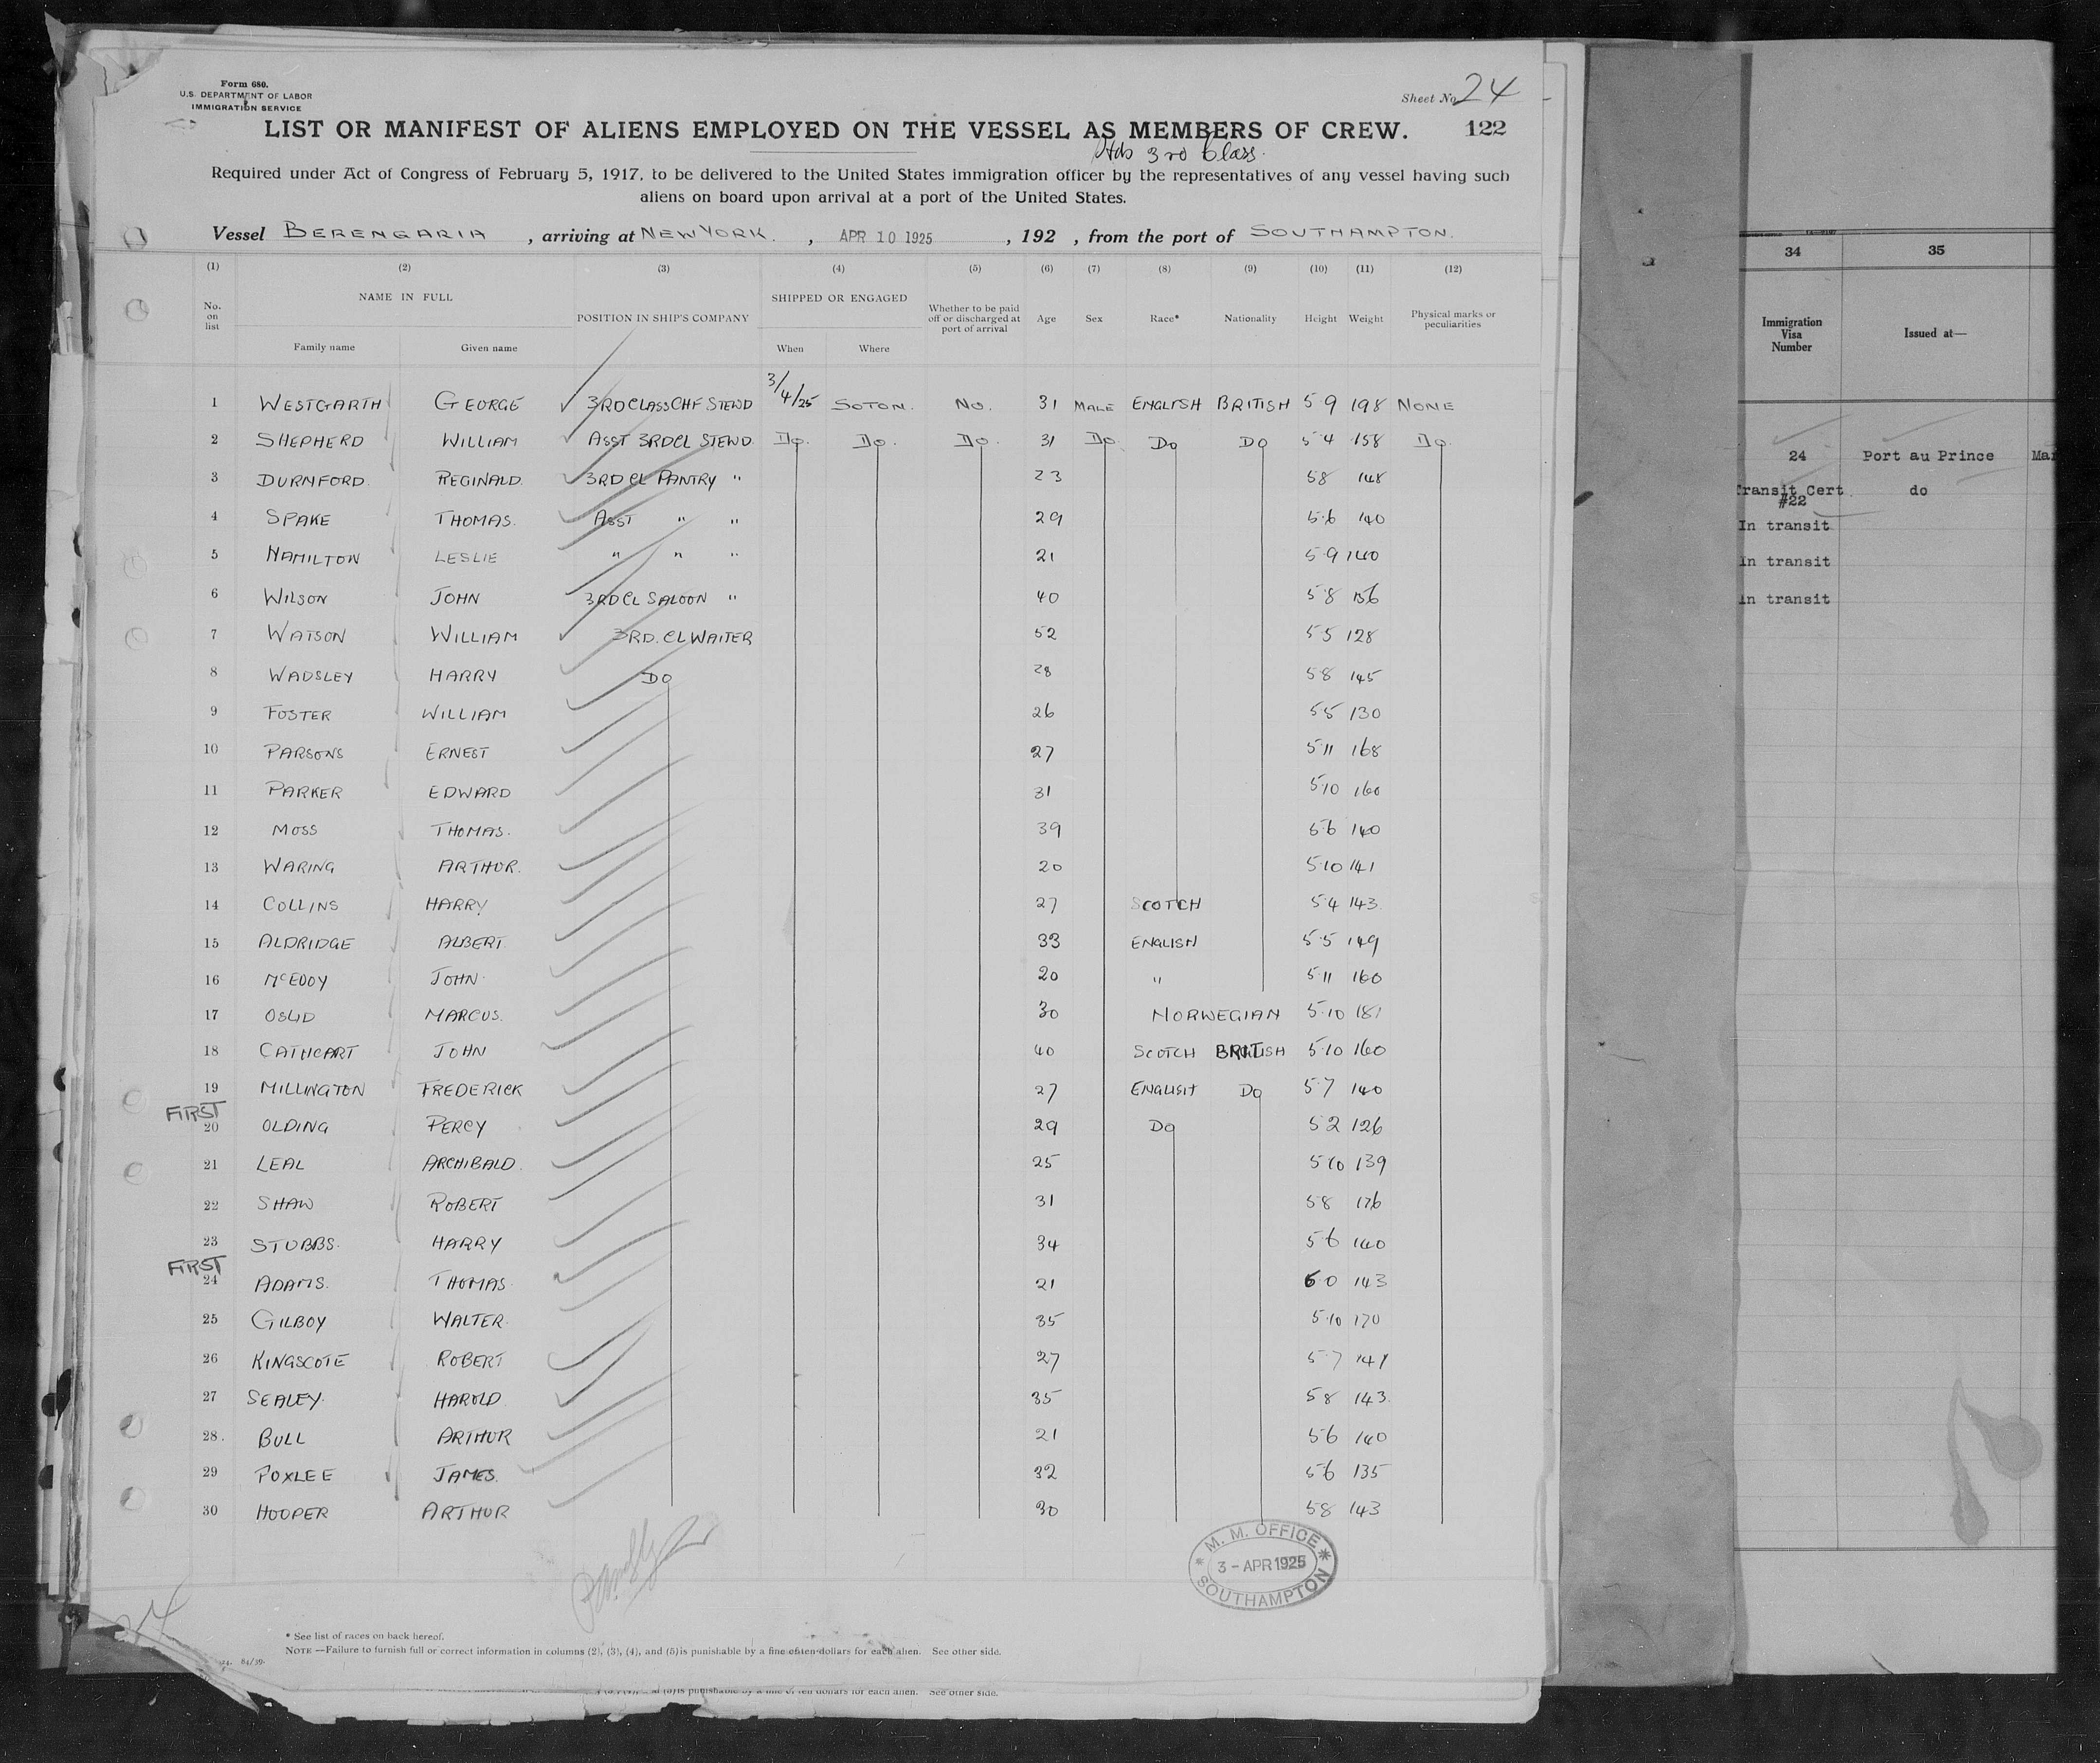 Form 680.
U.S. DEPARTMENT OF LABOR
IMMIGRATION SERVICE
Sheet No. 24
LIST OR MANIFEST OF ALIENS EMPLOYED ON THE VESSEL AS MEMBERS OF CREW. 122
3rd Class.
Required under Act of Congress of February 5, 1917, to be delivered to the United States immigration officer by the representatives of any vessel having such
aliens on board upon arrival at a port of the United States.
Vessel BERENGARIA, arriving at NEW YORK., APR 10 1925, 192 , from the port of SOUTHAMPTON.
(1) (2) (3) (4) (5) (6) (7) (8) (9) (10) (11) (12)
No. on list NAME IN FULL POSITION IN SHIP'S COMPANY SHIPPED OR ENGAGED Whether to be paid off or discharged at port of arrival Age Sex Race* Nationality Height Weight Physical marks or peculiarities
Family name Given name When Where
1 WESTGARTH GEORGE 3RD CLASS CHF STEWD 3/4/25 SOTON. NO. 31 MALE ENGLISH BRITISH 5 9 198 NONE
2 SHEPHERD WILLIAM ASST 3RD CL STEWD. DO. DO. DO. 31 DO DO DO 5 4 158 DO.
3 DURNFORD. REGINALD. 3RD CL PANTRY " 23 5 8 148
4 SPAKE THOMAS. ASST " " 29 5.6 140
5 HAMILTON LESLIE " " " 21 5.9 140
6 WILSON JOHN 3RD CL SALOON " 40 5.8 156
7 WATSON WILLIAM 3RD. CL WAITER 52 5 5 128
8 WADSLEY HARRY DO 28 5 8 145
9 FOSTER WILLIAM 26 5 5 130
10 PARSONS ERNEST 27 5 11 168
11 PARKER EDWARD 31 5 10 160
12 MOSS THOMAS. 39 5 6 140
13 WARING ARTHUR. 20 5.10 141
14 COLLINS HARRY 27 SCOTCH 5 4 143.
15 ALDRIDGE ALBERT. 33 ENGLISH 5.5 149
16 McEVOY JOHN. 20 " 5.11 160
17 MARCUS. 30 NORWEGIAN 5.10 181
18 CATHCART JOHN 40 SCOTCH BRITISH 5.10 160
19 MILLINGTON FREDERICK 27 ENGLISH DO 5.7 140
FIRST
20 OLDING PERCY 29 DO 5 2 126
21 LEAL ARCHIBALD. 25 5 10 139
22 SHAW ROBERT 31 5 8 176
23 STUBBS. HARRY 34 5 6 140
FIRST
24 ADAMS. THOMAS. 21 6 0 143
25 GILBOY WALTER. 35 5.10 170
26 KINGSCOTE ROBERT 27 5.7 141
27 SEALEY. HAROLD. 35 5 8 143.
28. BULL ARTHUR 21 5 6 140
29 POXLEE JAMES. 32 5 6 135
30 HOOPER ARTHUR 30 5 8 143
M. M. OFFICE
3 - APR 1925
SOUTHAMPTON
24
* See list of races on back hereof.
NOTE.—Failure to furnish full or correct information in columns (2), (3), (4), and (5) is punishable by a fine of ten dollars for each alien. See other side.
84/39.
is punishable by a fine of ten dollars for each alien. See other side.
34 35
Immigration Visa Number Issued at—
24 Port au Prince
Transit Cert #22 do
In transit
In transit
In transit